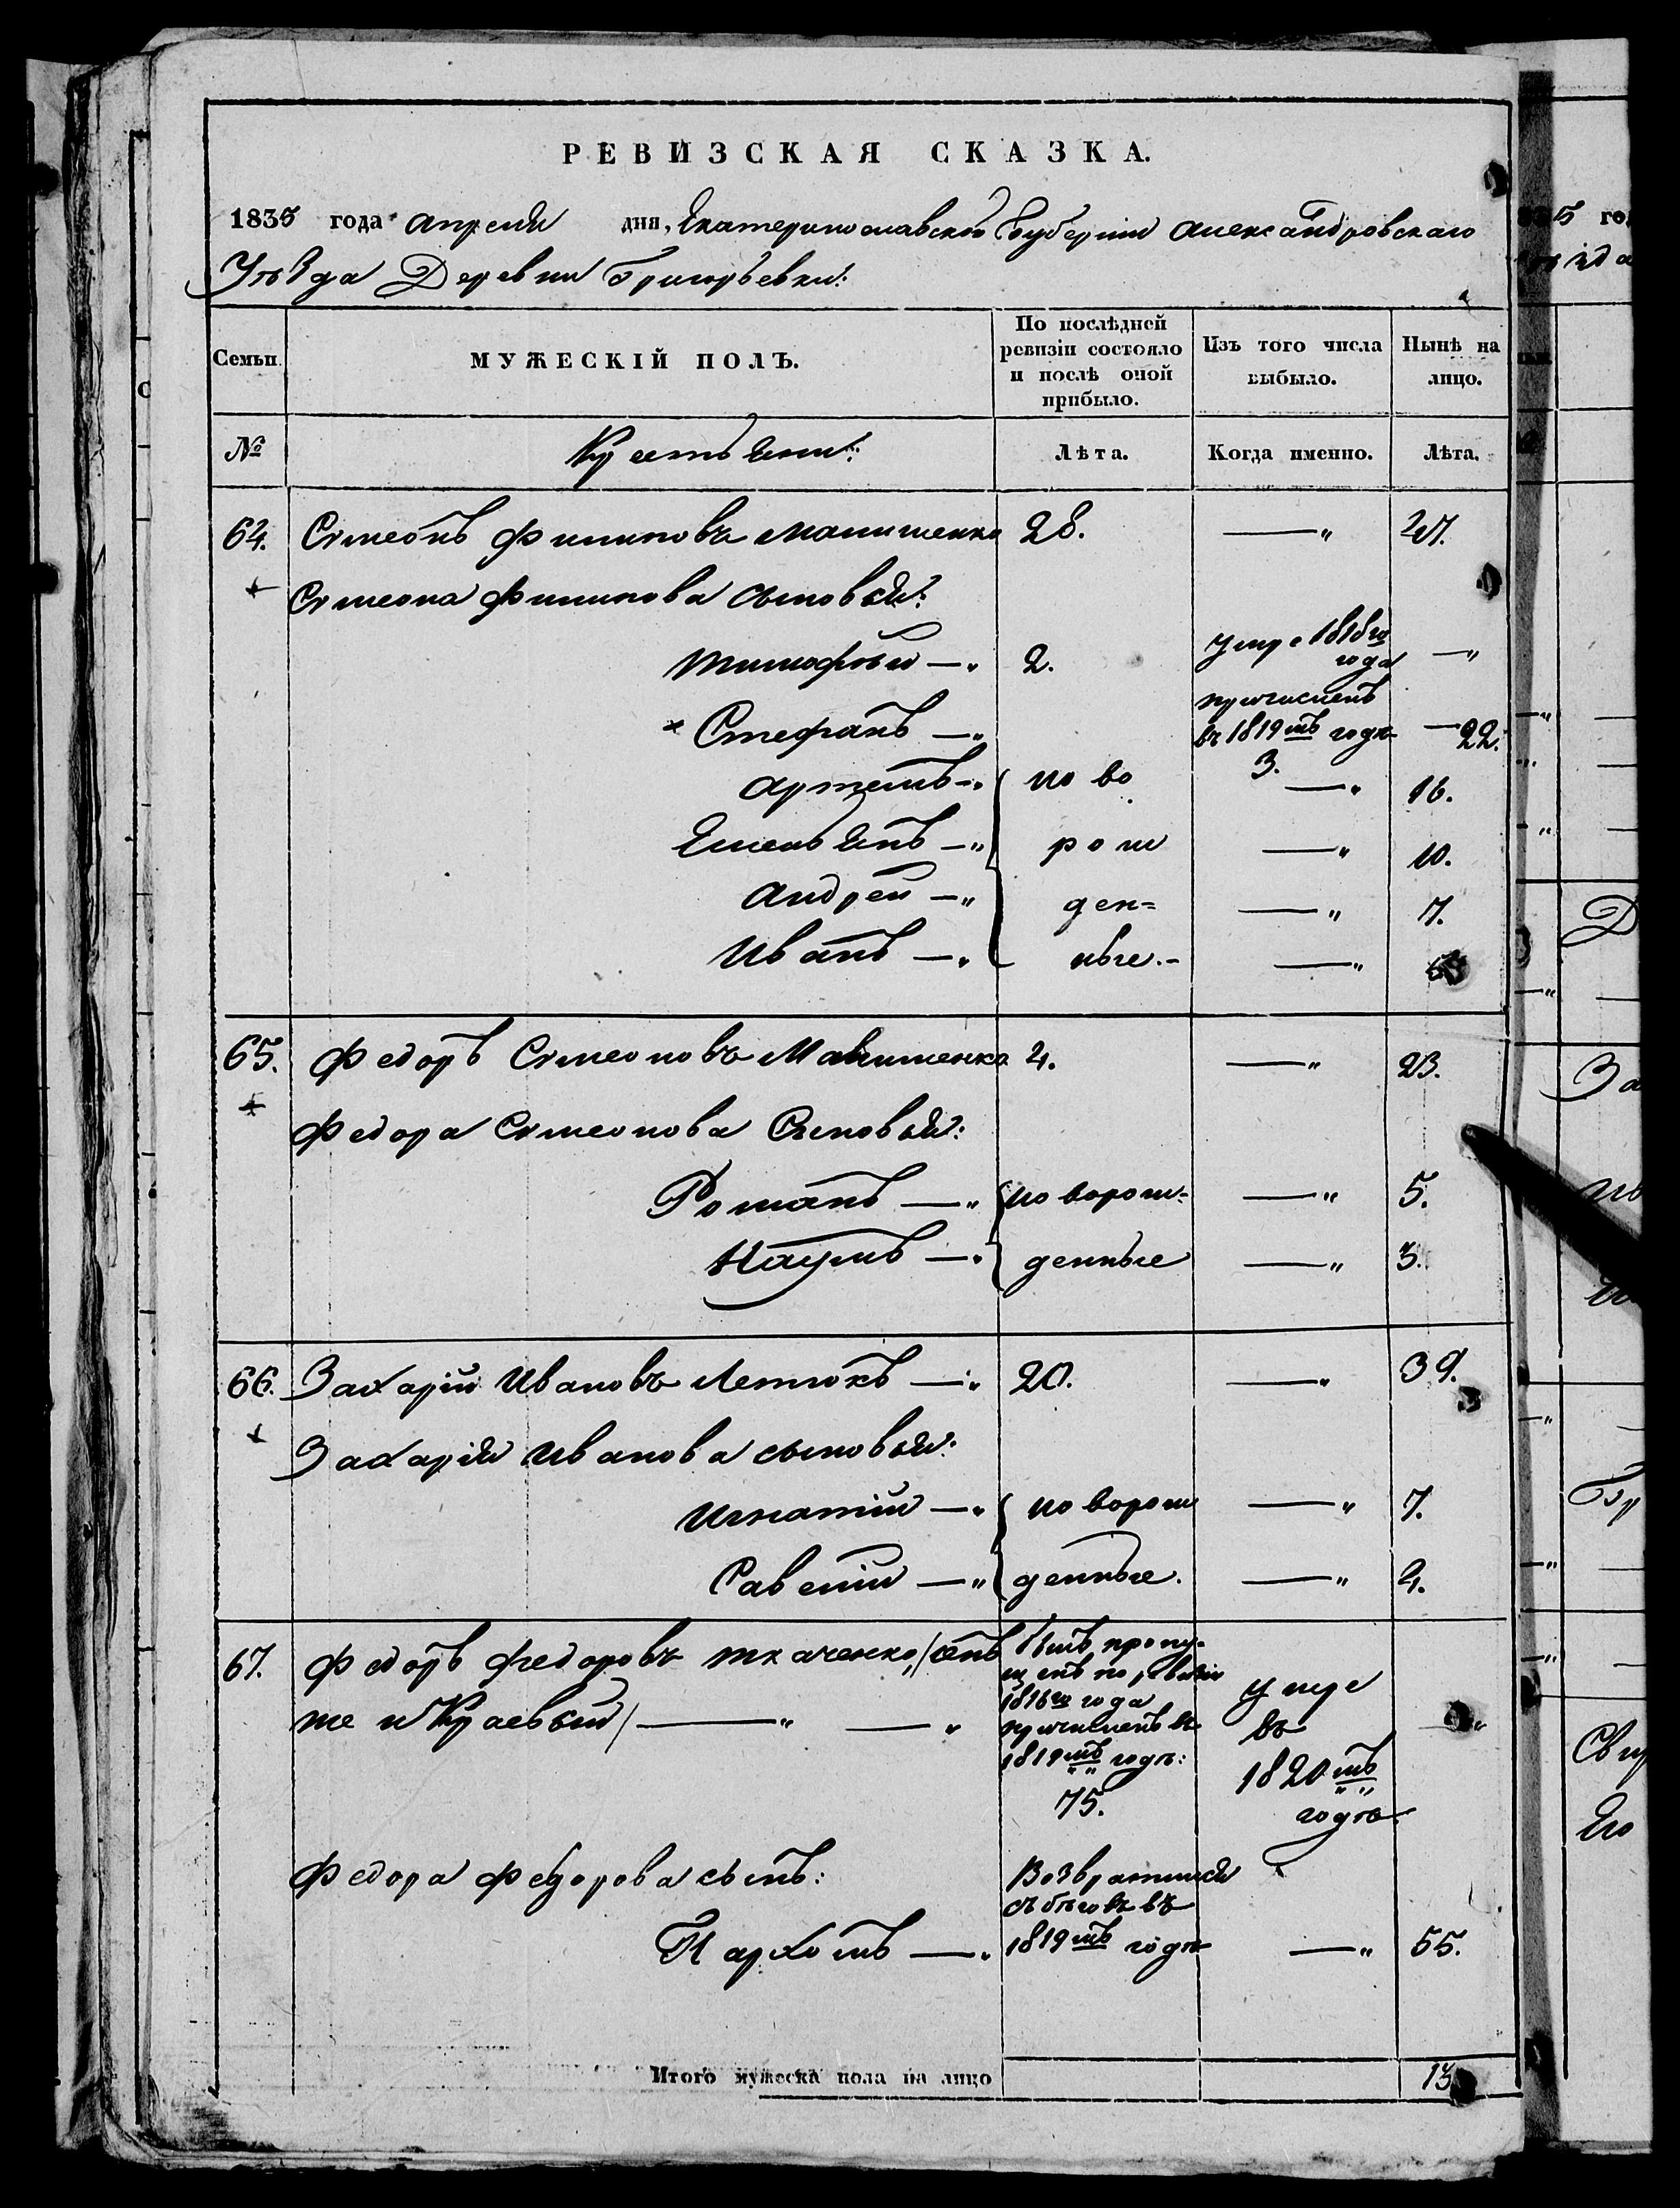 РЕВИЗСКАЯ СКАЗКА.
1835 года апреля дня, Екатеринославской Губернии Александровскаго
Уѣзда Деревни Григорьевки:
Семьи
МУЖЕСКІЙ ПОЛЪ.
По послѣдней ревизіи состояло и послѣ оной прибыло.
Изъ того числа выбыло.
Нынѣ на лицо.
№
Крестьяни:
Лѣта.
Когда именно.
Лѣта.
64. Симеонъ Филиповъ 28. —„ 47.
Симеона Филипова сыновья:
Тимофѣй —„ 2. умре 1818го года —„
× Стефанъ —„ причисленъ въ 1819мъ годѣ 3. — 22.
Артемъ —„ ново —„ 16.
Емельянъ —„ рож —„ 10.
Андрей —„ ден= —„ 7.
Иванъ —„ ные.- —„
65. Федоръ Симеоновъ 4. —„ 23.
Федора Симеонова Сыновья:
Романъ —„ новорож= —„ 5.
Наумъ —„ денные —„ 3.
66. Захарій Ивановъ Летюкъ —„ 20. —„ 39.
Захарія Иванова сыновья:
Игнатій —„ новорож —„ 7.
Савелій —„ денные. —„ 4.
67. Федоръ Федоровъ Ткаченко, /онъ
же и Краевый/ —„ —„
былъ пропу-
щенъ по ревизіи
1816го года
причисленъ въ
1819мъ годѣ:
75.
умре
въ
1820мъ
годѣ
—„
Федора Федорова сынъ:
Возвратился
съ бѣговъ въ
Пархомъ —„ 1819мъ годѣ —„ 55.
Итого мужеска пола на лицо 13